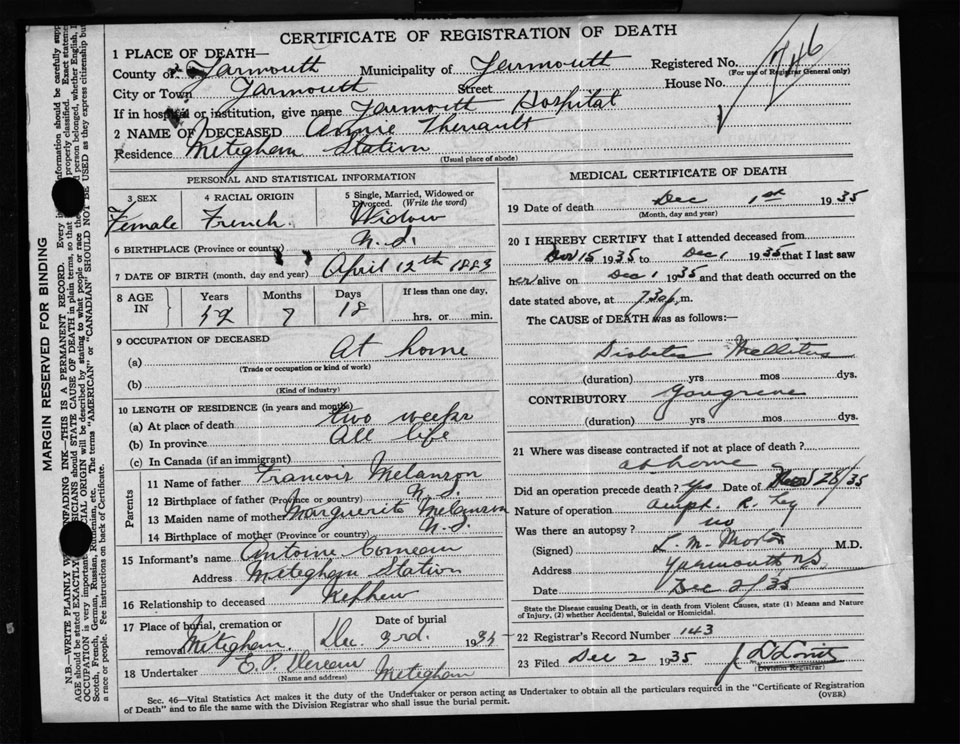 CERTIFICATE OF REGISTRATION OF DEATH
1 PLACE OF DEATH—
County of Yarmouth Municipality of Yarmouth Registered No. 746
(For use of Registrar General only)
City or Town Yarmouth Street House No.
If in hospital or institution, give name Yarmouth Hospital
2 NAME OF DECEASED Theriault
Residence Meteghan Station
(Usual place of abode)
PERSONAL AND STATISTICAL INFORMATION
3 SEX 4 RACIAL ORIGIN 5 Single, Married, Widowed or Divorced. (Write the word)
Female French. Widow
6 BIRTHPLACE (Province or country) N.S.
7 DATE OF BIRTH (month, day and year) April 12th 1883
8 AGE IN Years Months Days If less than one day,
52 7 18 hrs. or min.
9 OCCUPATION OF DECEASED
(a) At home
(Trade or occupation or kind of work)
(b)
(Kind of industry)
10 LENGTH OF RESIDENCE (in years and months)
(a) At place of death two weeks
(b) In province All life
(c) In Canada (if an immigrant)
Parents
11 Name of father Francois Melanson
12 Birthplace of father (Province or country) N.S.
13 Maiden name of mother Marguerite Melanson
14 Birthplace of mother (Province or country) N.S.
15 Informant's name Antoine Comeau
Address Meteghan Station
16 Relationship to deceased Nephew
17 Place of burial, cremation or removal Date of burial
Meteghan. Dec. 3rd. 1935
18 Undertaker Meteghan
(Name and address)
MEDICAL CERTIFICATE OF DEATH
19 Date of death Dec 1st 1935
(Month, day and year)
20 I HEREBY CERTIFY that I attended deceased from
Nov 15 1935 to Dec 1 1935 that I last saw
her alive on Dec 1 1935 and that death occurred on the
date stated above, at 730 p.m.
The CAUSE of DEATH was as follows:—
Diabetes Mellitus
(duration) yrs mos dys.
CONTRIBUTORY Gangrene
(duration) yrs mos dys.
21 Where was disease contracted if not at place of death?
at home
Did an operation precede death? Yes Date of Nov 28/35
Nature of operation Ampt. R. Leg
Was there an autopsy? no
(Signed) L. M. Morton M.D.
Address Yarmouth N.S.
Date Dec 2/35
State the Disease causing Death, or in death from Violent Causes, state (1) Means and Nature of Injury, (2) whether Accidental, Suicidal or Homicidal.
22 Registrar's Record Number 143
23 Filed Dec 2 1935
(Division Registrar)
Sec. 46—Vital Statistics Act makes it the duty of the Undertaker or person acting as Undertaker to obtain all the particulars required in the "Certificate of Registration
of Death" and to file the same with the Division Registrar who shall issue the burial permit. (OVER)
MARGIN RESERVED FOR BINDING
N.B.—WRITE PLAINLY UNFADING INK—THIS IS A PERMANENT RECORD. Every information should be carefully
AGE should be stated EXACTLY. should STATE CAUSE OF DEATH in plain terms, so that properly classified. Exact
OCCUPATION is very important. RACIAL ORIGIN will be described by stating to what people or race the person belonged, whether English,
Scotch, French, German, Russian, Ruthenian, etc. The terms "AMERICAN" or "CANADIAN" SHOULD NOT BE USED as they express citizenship but
a race or people. See instructions on back of Certificate.